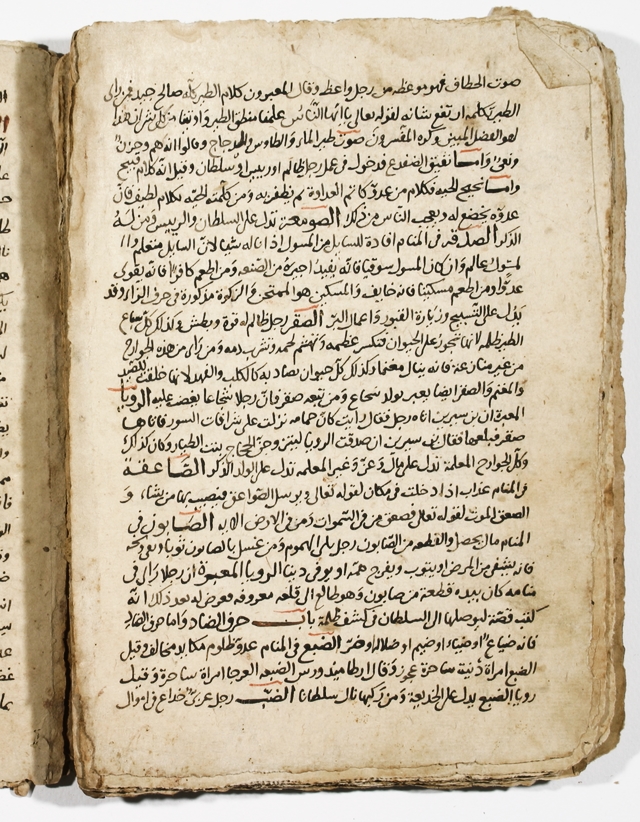 صوت الخطاف فهو موعظه من رجل واعظ وقال المعبرون كلام الطير كله صالح جيد فمن راى
الطير تكلمه ارتفع شانه لقوله تعالى يا ايها الناس علمنا منطق الطير واوتينا من كل شى ان هذا
لهو الفضل المبين وكره المفسرون صوت طير الماء والطاوس والدجاج وقالوا انه هم وحزن
ونعى واما نقيق الضفدع فدخول فى عمل رجل ظالم او رييس او سلطان وقيل انه كلام قبيح
واما فحيح الحيه فكلام من عدو كاتم العداوة ثم يظفر به ومن كلمته الحيه بكلام لطيف فان
عدوه يخضع له ويعجب الناس من ذلك الصومعة تدل على السلطان والرييس ومن له
الذكر الصدقه فى المنام افادة للسايل من المسول اذا ناله شيا لان السايل متعلم وا
لمسول عالم وان كان المسول سوقيا فانه يفيد اجيره من الصنعه ومن اطعم كافرا فانه يقوى
عدوا ومن اطعم مسكينا فانه خايف والمسكين هو الممتحن والزكوة مذكورة فى حرف الزاء وقد
يدل على التسبيح وزيارة القبور واعمال البر الصقر رجل ظالم له قوة وبطش وكذلك كل سباع
الطير ظلمه لانها تجور على الحيوان فتكسر عظمه وتهشم لحمه وتشرب دمه ومن راى من هذه الجوارح
من غير منازعة فانه ينال مغنما وكذلك كل حيوان يصاد به كالكلب والفهد لانها خلقت للصيد
والمغنم والصقر ايضا يعبر بولد شجاع ومن تبعه صقر فان رجلا شجاعا يغضب عليه الرويا
المعبرة ابن سيرين اتاه رجل فقال رايت كان حمامه نزلت على شرافات السور فاتاها
صقر فابتلعها فقال بن سيرين ان صدقت الرويا ليتزوجن الحجاج بنت الطيار وكان كذلك
وكل الجوارح المعلمة تدل على مال وعز وغير المعلمه تدل على الولد الذكر الصاعقة
فى المنام عذاب اذا دخلت فى مكان لقوله تعالى ويرسل الصواعق فيصيب بها من يشا و
الصعق الموت لقوله تعالى فصعق من فى السموات ومن فى الارض الايه الصابون فى
المنام مال يحصل والقطعه من الصابون رجل يلم الهموم ومن غسل بالصابون ثوبا
فانه يشفى من المرض او يتوب ويفرج همه او يوفى دينا الرويا المعبرة ان رجلا راى فى
منامه كان بيده قطعة من صابون وهو طالع الى قلعه معروفه فعرض له بعد ذلك انه
كتب قصة ليوصلها الى السلطان فى كشف ظلمة باب حرف الضاد واما حرف الضاد
فانه ضياع او ضياء او ضيم او ضلالة او ضر الضبع فى المنام عدو ظلوم مكايد مخالف وقيل
الضبع امراة دنية ساحرة عجوز وقال ارطاميدورس الضبعه العرجا امراة ساحرة وقيل
رويا الضبع يدل على الخديعة ومن ركبها نال سلطانا الضب رجل عربى خداع فى اموال